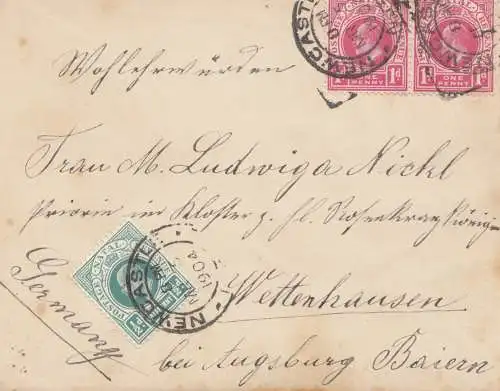 Wohlehrwürden
Frau M. Ludwiga Nickl
Priorin im Kloster z. hl. Rosenkranzkönigin
Wettenhausen
bei Augsburg Baiern
Germany
NEWCASTLE
1904
POSTAGE NATAL REVENUE
1d ONE PENNY 1d
1d ONE PENNY 1d